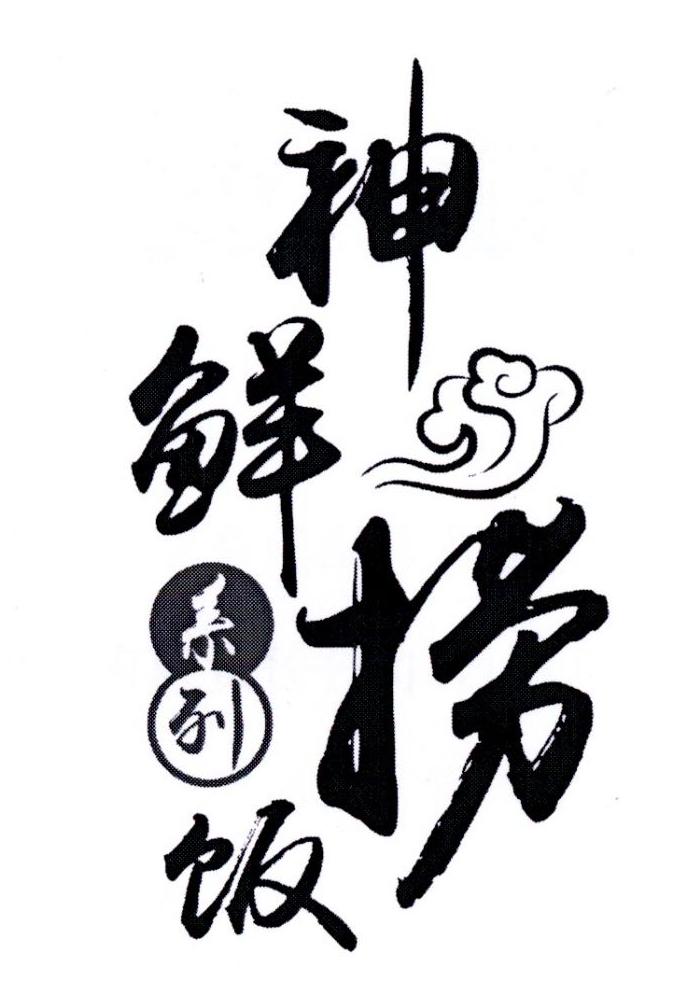 神鲜捞饭
系列